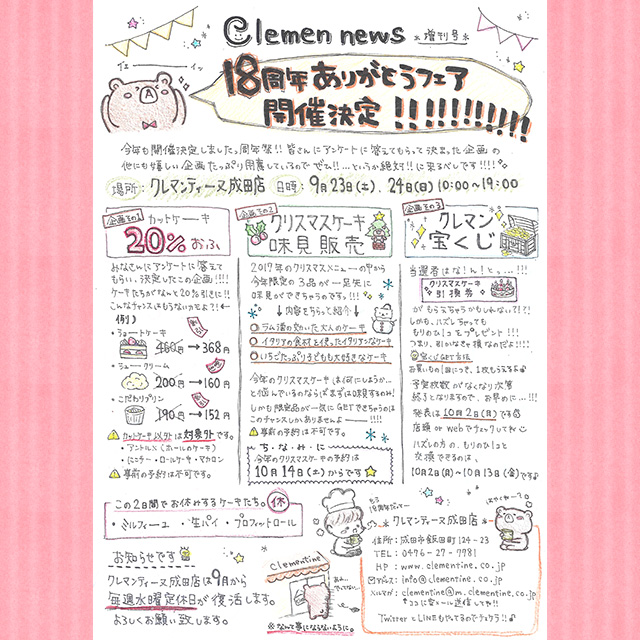 Clemen news *増刊号*
イェーーイッ
18周年ありがとうフェア
開催決定!!!!!!!!!!!
今年も開催決定しましたっ周年祭!!皆さんにアンケートに答えてもらって決まった企画の
他にも嬉しい企画たっぷり用意しているのでぜひ!!…というか絶対!!に来るべしです!!!!
場所:クレマンティーヌ成田店 日時:9月23日(土).24日(日)10:00〜19:00
企画その1 カットケーキ
20%おふ
みなさんにアンケートに答えて
もらい、決定したこの企画!!!!
ケーキたちがなんと20%引きに!!
こんなチャンスにもらないわよ?!
例)
・ショートケーキ
460円→368円
・シュークリーム
200円→160円
・こだわりプリン
190円→152円
カットケーキ以外は対象外です。
・アントルメ(ホールのケーキ)
・ミニエラー・ロールケーキ・マカロン
事前の予約は不可です。
企画その2
クリスマスケーキ
味見販売
2017年のクリスマスメニューの中から
今年限定の3品が一足先に
味見ができちゃうのです!!!
↓内容をちらっと紹介↓
ラム酒の効いた大人のケーキ
イタリアの食材を使ったイタリアンなケーキ
いちごたっぷり子どもも大好きなケーキ
今年のクリスマスケーキは何にしようか…
と悩んでいるのならばまずは味見するのみ!
しかも限定品が一気にGETできちゃうのは
このチャンスしかありませんよー!!!!
事前の予約は不可です。
ち・な・み・に
今年のクリスマスケーキの予約は
10月14日(土)からです
企画その3
クレマン
宝くじ
当選者はな!ん!と。…!!!
クリスマスケーキ
引換券
がもらえちゃうかもしれない?!?
しかも、ハズレちゃっても
もりのひ1コをプレゼント!!!
つまり、引かなきゃ損なのだよ!!!!
宝くじGET方法
お買いもの1回につき、1枚もらえるよ
予定枚数がなくなり次第
終了となりますので、お早めに…!!!
発表は10月2日(月)です
店頭orWebでチェックしてね
ハズレの方の、もりのひ1コと
交換できるのは、
10月2日(月)〜10月13日(金)ですよ
この2日間でお休みするケーキたち。休
・ミルフィーユ ・生パイ ・プロフィットロール
お知らせです
クレマンティーヌ成田店は9月から
毎週水曜定休日が復活します。
よろしくお願い致します。
Clementine
※なんて事にならないように。
もう
18周年だって〜
はやくね〜?
*クレマンティーヌ成田店*
住所:成田市飯田町124-23
TEL:0476-27-7781
HP:www.clementine.co.jp
info@clementine.co.jp
メルマガ:clementine@m.clementine.co.jp
↑ココに空メール送信してや!!
TwitterとLINEもやってるのでチェケラ!!